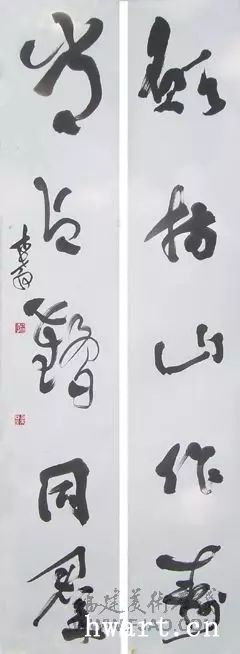 指山作壽
與鶴同羣
福建美术
hwart.cn